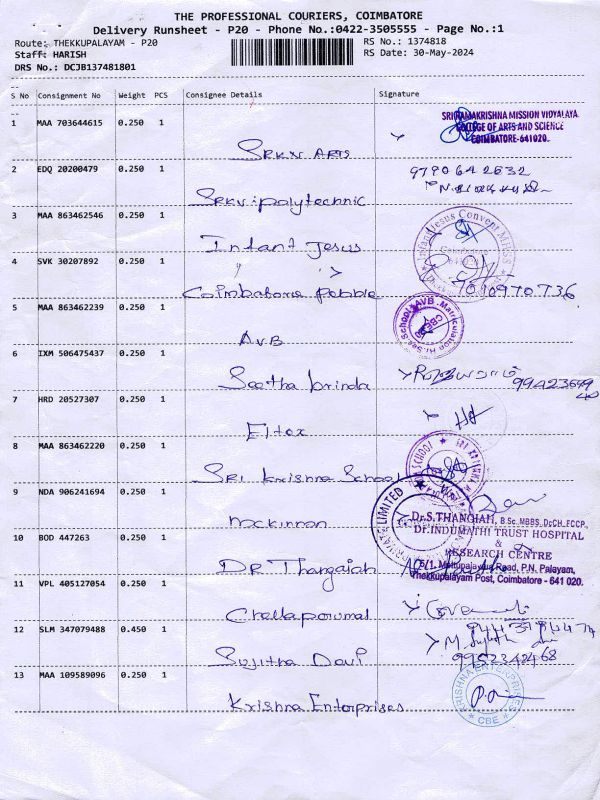 THE PROFESSIONAL COURIERS, COIMBATORE
Delivery Runsheet - P20 - Phone No.:0422-3505555 - Page No.:1
Route: THEKKUPALAYAM - P20
RS No.: 1374818
Staff: HARISH
RS Date: 30-May-2024
DRS No.: DCJB137481801
S No Consignment No Weight PCS Consignee Details Signature
1 MAA 703644615 0.250 1
SRI RAMAKRISHNA MISSION VIDYALAYA
COLLEGE OF ARTS AND SCIENCE
COIMBATORE-641020.
SRKV ARTS
2 EDQ 20200479 0.250 1
9790642832
SRKV polytechnic
3 MAA 863462546 0.250 1
Infant Jesus Convent
Infant Jesus
4 SVK 30207892 0.250 1
7090970736
Coimbatore Pebble
5 MAA 863462239 0.250 1
AVB Matriculation Hr. Sec. School
CBE
AVB
6 IXM 506475437 0.250 1
Seetha brinda
7 HRD 20527307 0.250 1
Eltex
8 MAA 863462220 0.250 1
SCHOOL
SRI Krishna School
9 NDA 906241694 0.250 1
PRIVATE LIMITED
Mckinnon
Dr.S.THANGIAH, B.Sc.,MBBS.,DcCH.,FCCP.,
Dr.INDUMATHI TRUST HOSPITAL
&
RESEARCH CENTRE
5/1, Mettupalayam Road, P.N. Palayam,
Thekkupalayam Post, Coimbatore - 641 020.
10 BOD 447263 0.250 1
DR Thangaiah
11 VPL 405127054 0.250 1
Chellaperumal
12 SLM 347079488 0.450 1
9952342468
Sujitha Devi
13 MAA 109589096 0.250 1
KRISHNA ENTERPRISES
CBE
Krishna Enterprises